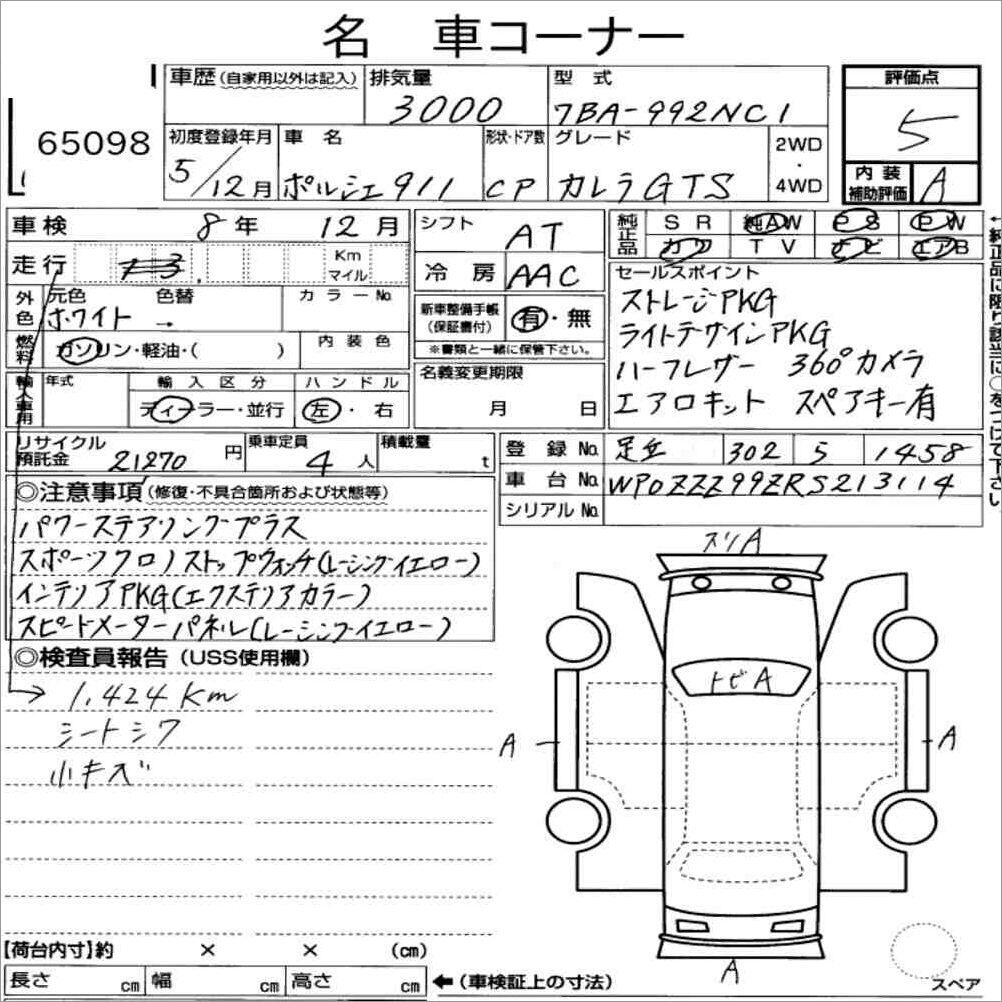 名 車コーナー
65098
車歴 (自家用以外は記入) 排気量 型 式 評価点
3000 7BA-992NC1 5
初度登録年月 車 名 形状・ドア数 グレード 2WD・4WD
5/12月 ポルシェ911 CP カレラGTS
内装補助評価 A
車検 8年 12月
シフト AT
純正品 SR 純AW PS PW
カワ TV ナビ エアB
走行 Km マイル
冷房 AAC
セールスポイント
ストレージPKG
ライトデザインPKG
ハーフレザー 360°カメラ
エアロキット スペアキー有
外色 元色 色替 カラーNo.
ホワイト →
新車整備手帳(保証書付) 有・無
※書類と一緒に保管下さい。
燃料 ガソリン・軽油・( ) 内装色
名義変更期限
月 日
輸入車用 年式 輸入区分 ハンドル
ディーラー・並行 左・右
←純正品に限り該当に○をつけて下さい。
リサイクル預託金 21270円 乗車定員 4人 積載量 t
登録No. 足立 302 5 1458
車台No. WP0ZZZ99ZRS213114
シリアルNo.
◎注意事項(修復・不具合箇所および状態等)
パワーステアリングプラス
スポーツクロノストップウォッチ(レーシングイエロー)
インテリアPKG(エクステリアカラー)
スピードメーターパネル(レーシングイエロー)
◎検査員報告(USS使用欄)
→ 1,424Km
シートシワ
小キズ
スリA
トビA
A
A
A
【荷台内寸】約 × × (cm)
長さ cm 幅 cm 高さ cm ←(車検証上の寸法)
スペア